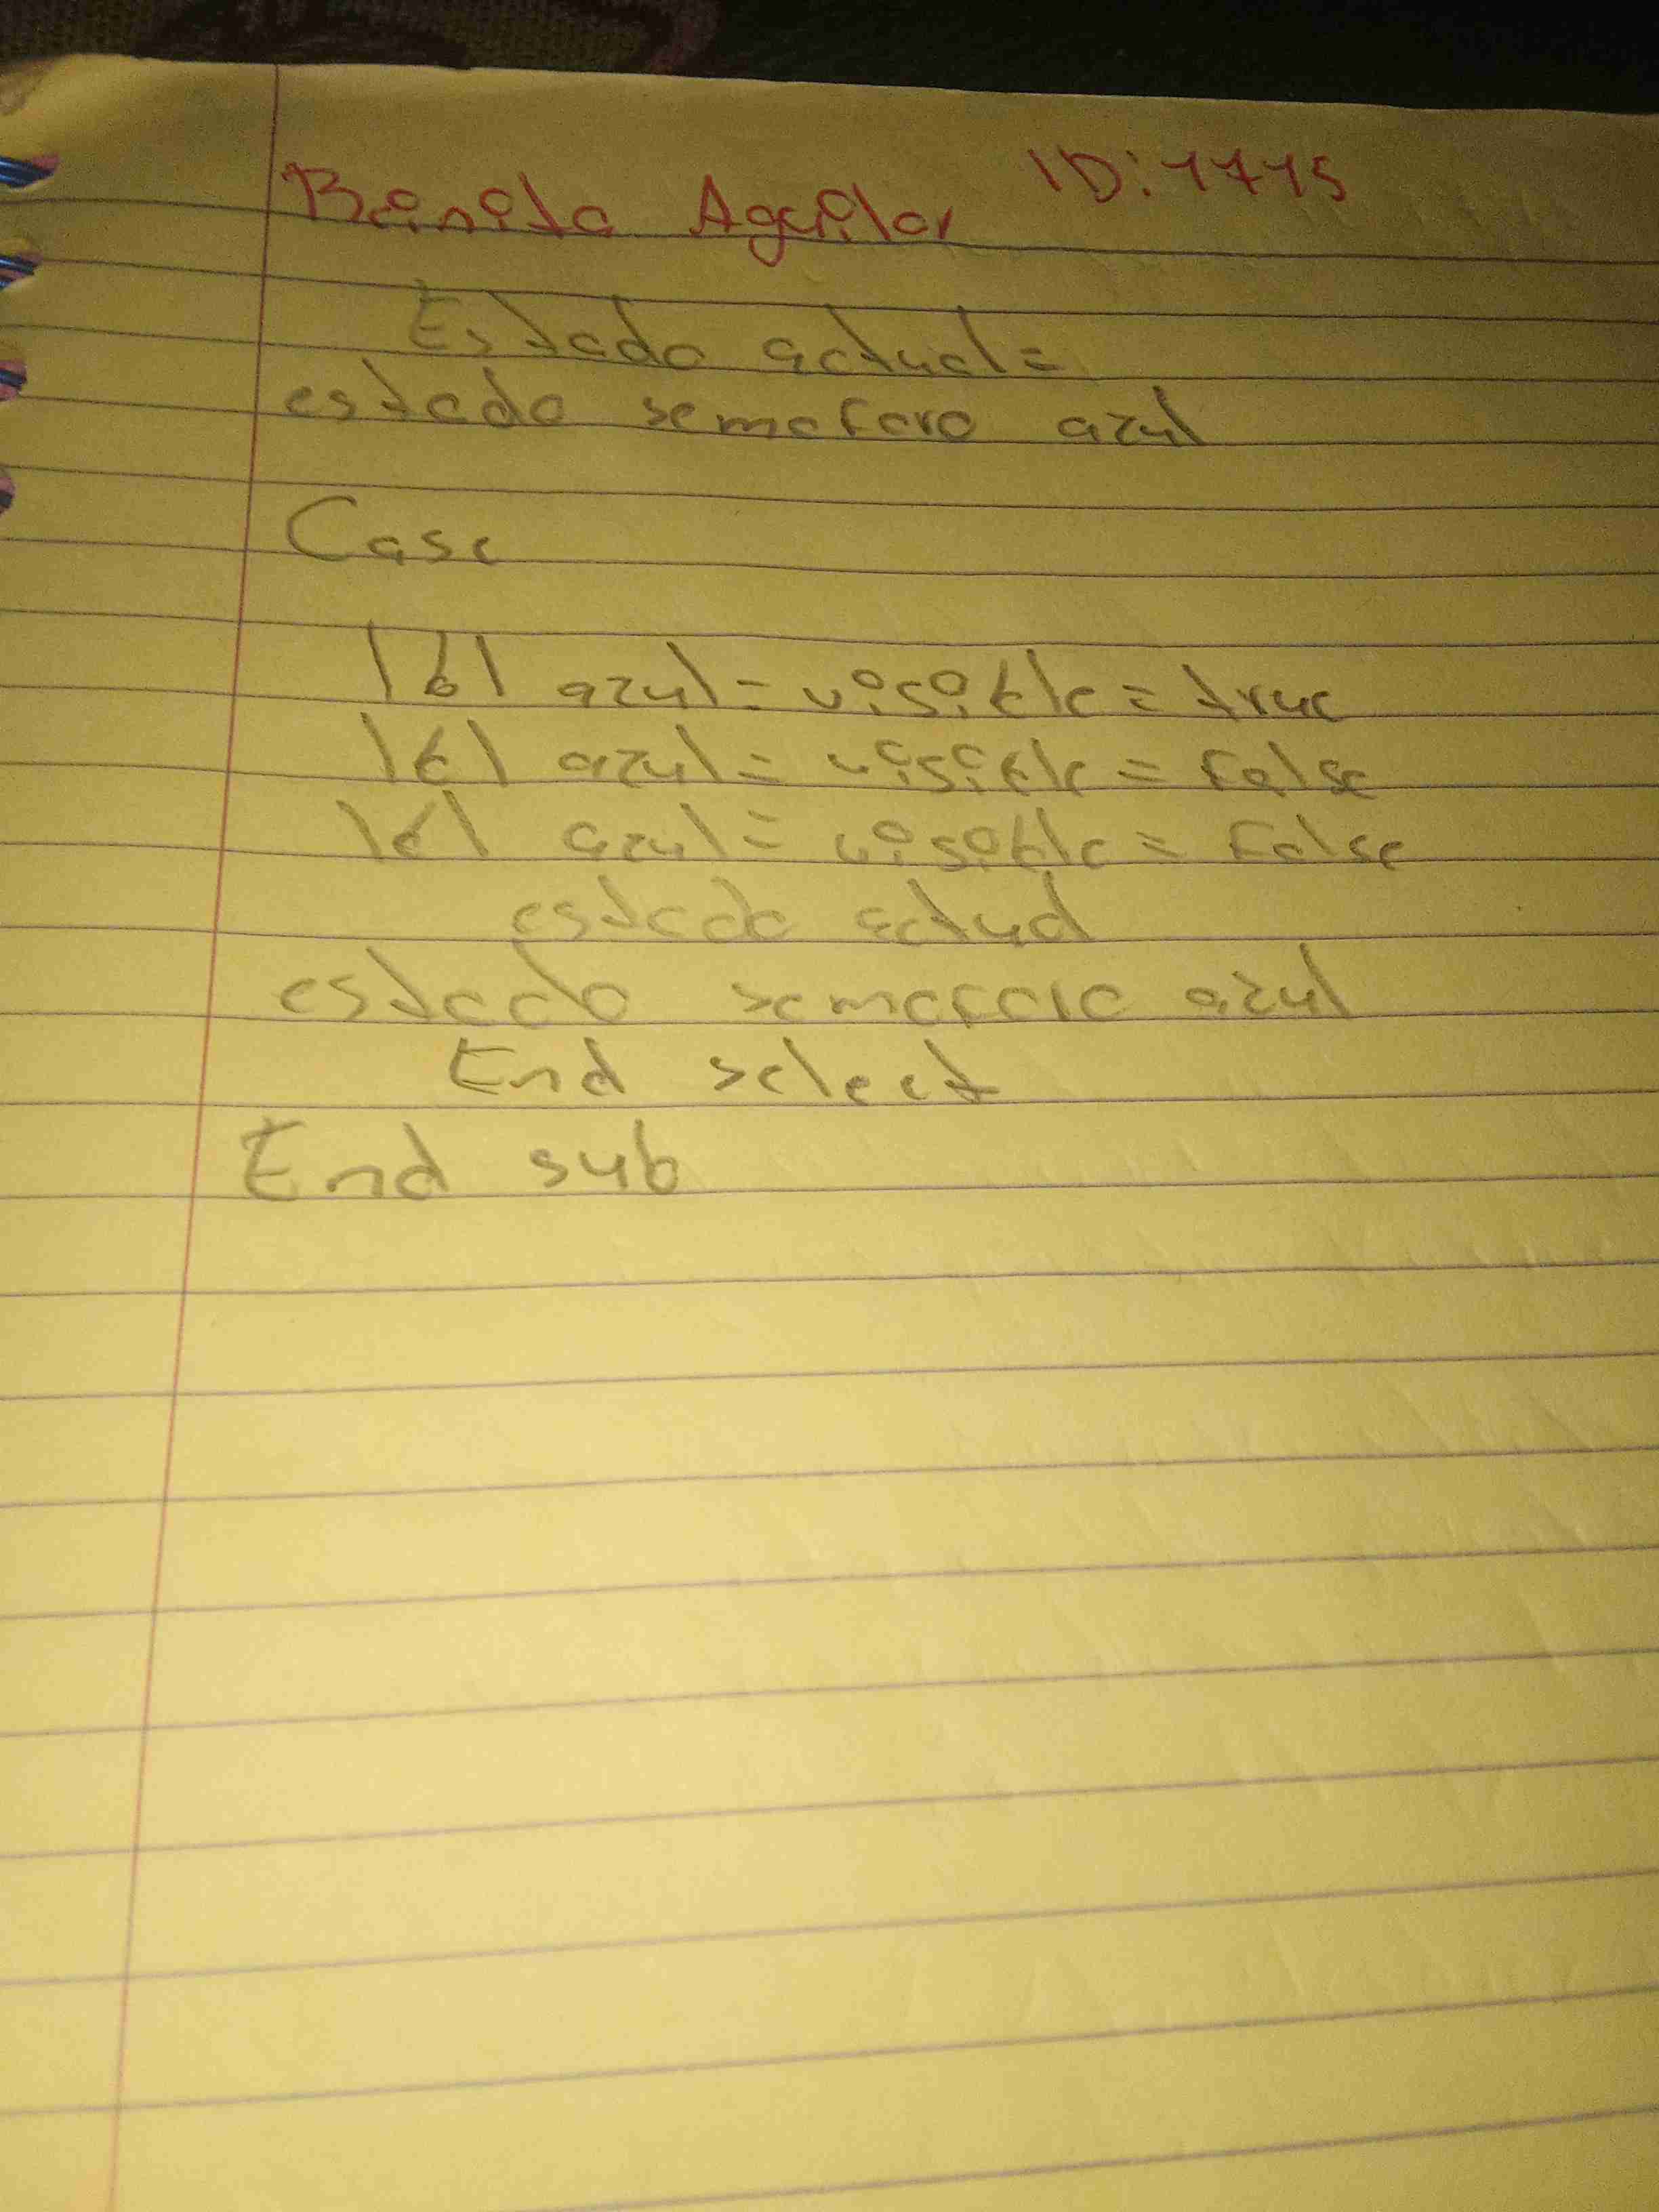 Benita Aguilar ID: 1775
Estado actual=
estado semaforo azul
Case
lbl azul = visible = true
lbl azul = visible = false
lbl azul = visible = false
estado actual
estado semaforo azul
End select
End sub